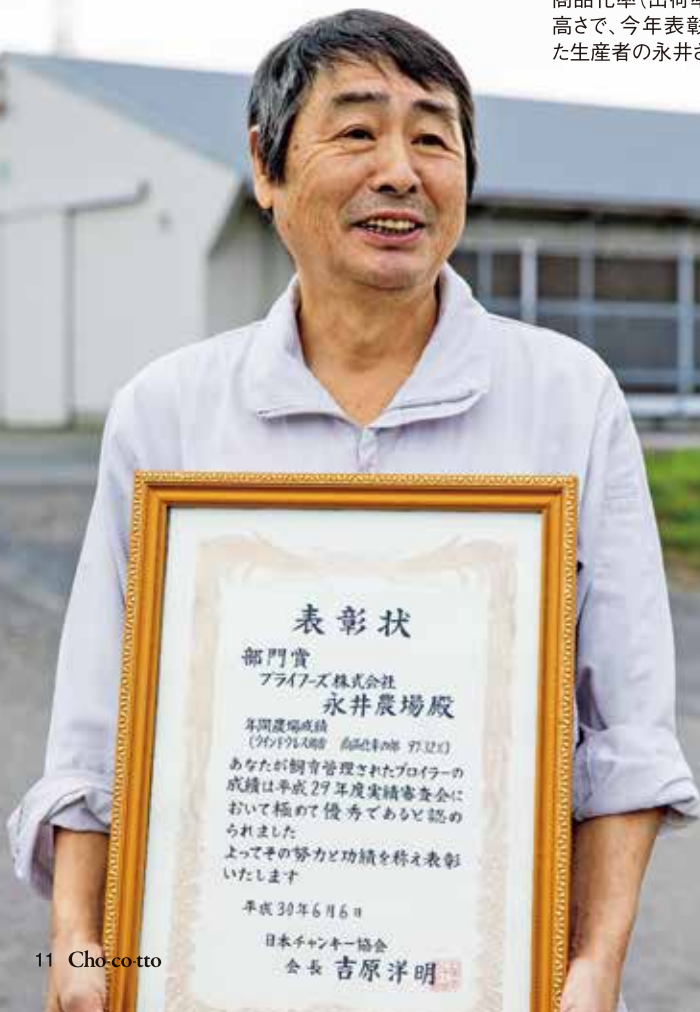 高さで、今年表彰
た生産者の永井さ
表彰状
部門賞
プライフーズ株式会社
永井農場殿
年間農場成績
(ウインドウレス鶏舎 商品化率の部 97.32%)
あなたが飼育管理されたブロイラーの
成績は平成29年度実績審査会に
おいて極めて優秀であると認め
られました
よってその努力と功績を称え表彰
いたします
平成30年6月6日
日本チャンキー協会
会長 吉原洋明
11 Cho-co-tto